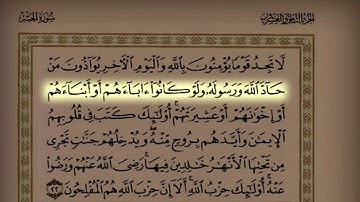 الجزء الثامن والعشرون
سورة المجادلة
لَّا تَجِدُ قَوْمًا يُؤْمِنُونَ بِٱللَّهِ وَٱلْيَوْمِ ٱلْأَخِرِ يُوَآدُّونَ مَنْ
حَآدَّ ٱللَّهَ وَرَسُولَهُۥ وَلَوْ كَانُوٓا۟ ءَابَآءَهُمْ أَوْ أَبْنَآءَهُمْ
أَوْ إِخْوَٰنَهُمْ أَوْ عَشِيرَتَهُمْ أُو۟لَٰٓئِكَ كَتَبَ فِى قُلُوبِهِمُ
ٱلْإِيمَٰنَ وَأَيَّدَهُم بِرُوحٍ مِّنْهُ وَيُدْخِلُهُمْ جَنَّٰتٍ تَجْرِى
مِن تَحْتِهَا ٱلْأَنْهَٰرُ خَٰلِدِينَ فِيهَا رَضِىَ ٱللَّهُ عَنْهُمْ وَرَضُوا۟
عَنْهُ أُو۟لَٰٓئِكَ حِزْبُ ٱللَّهِ أَلَآ إِنَّ حِزْبَ ٱللَّهِ هُمُ ٱلْمُفْلِحُونَ ٢٢